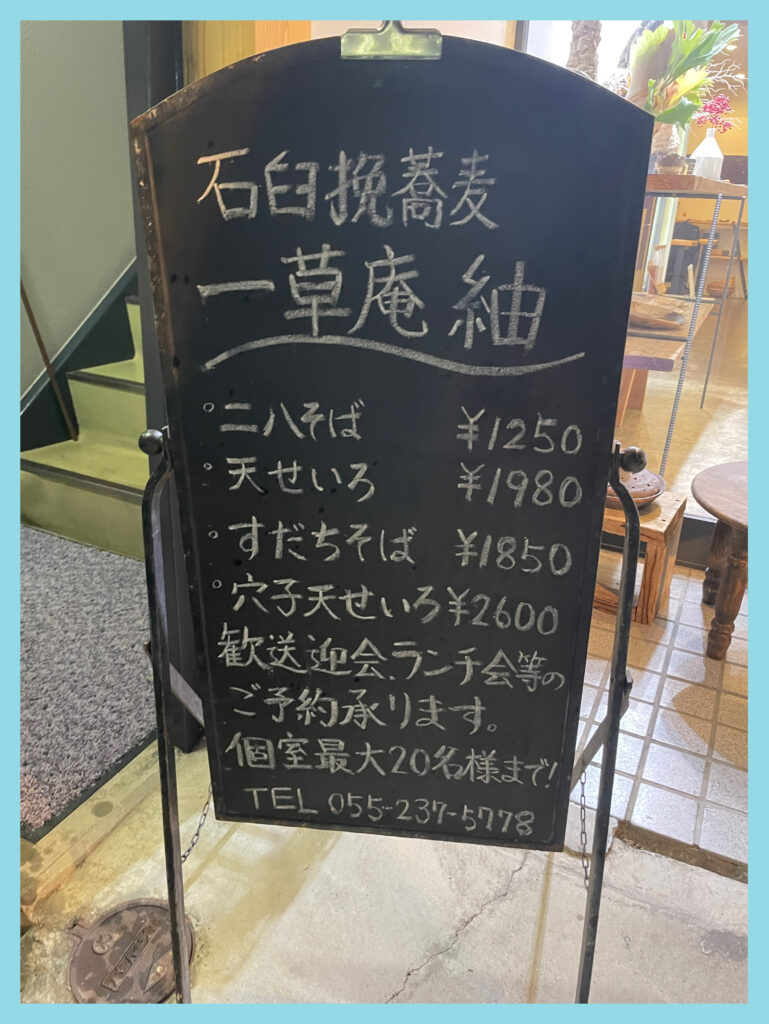 石臼挽蕎麦
一草庵 紬
°二八そば ¥1250
°天せいろ ¥1980
°すだちそば ¥1850
°穴子天せいろ ¥2600
歓送迎会、ランチ会等の
ご予約承ります。
個室最大20名様まで!
TEL 055-237-5778